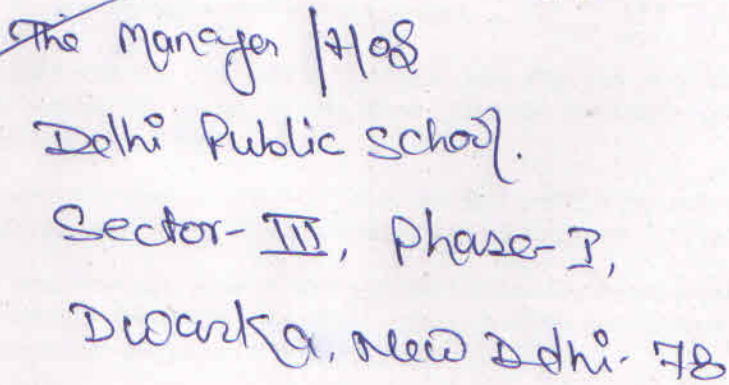 The Manager/HOS
Delhi Public School.
Sector-III, Phase-I,
Dwarka, New Delhi-78